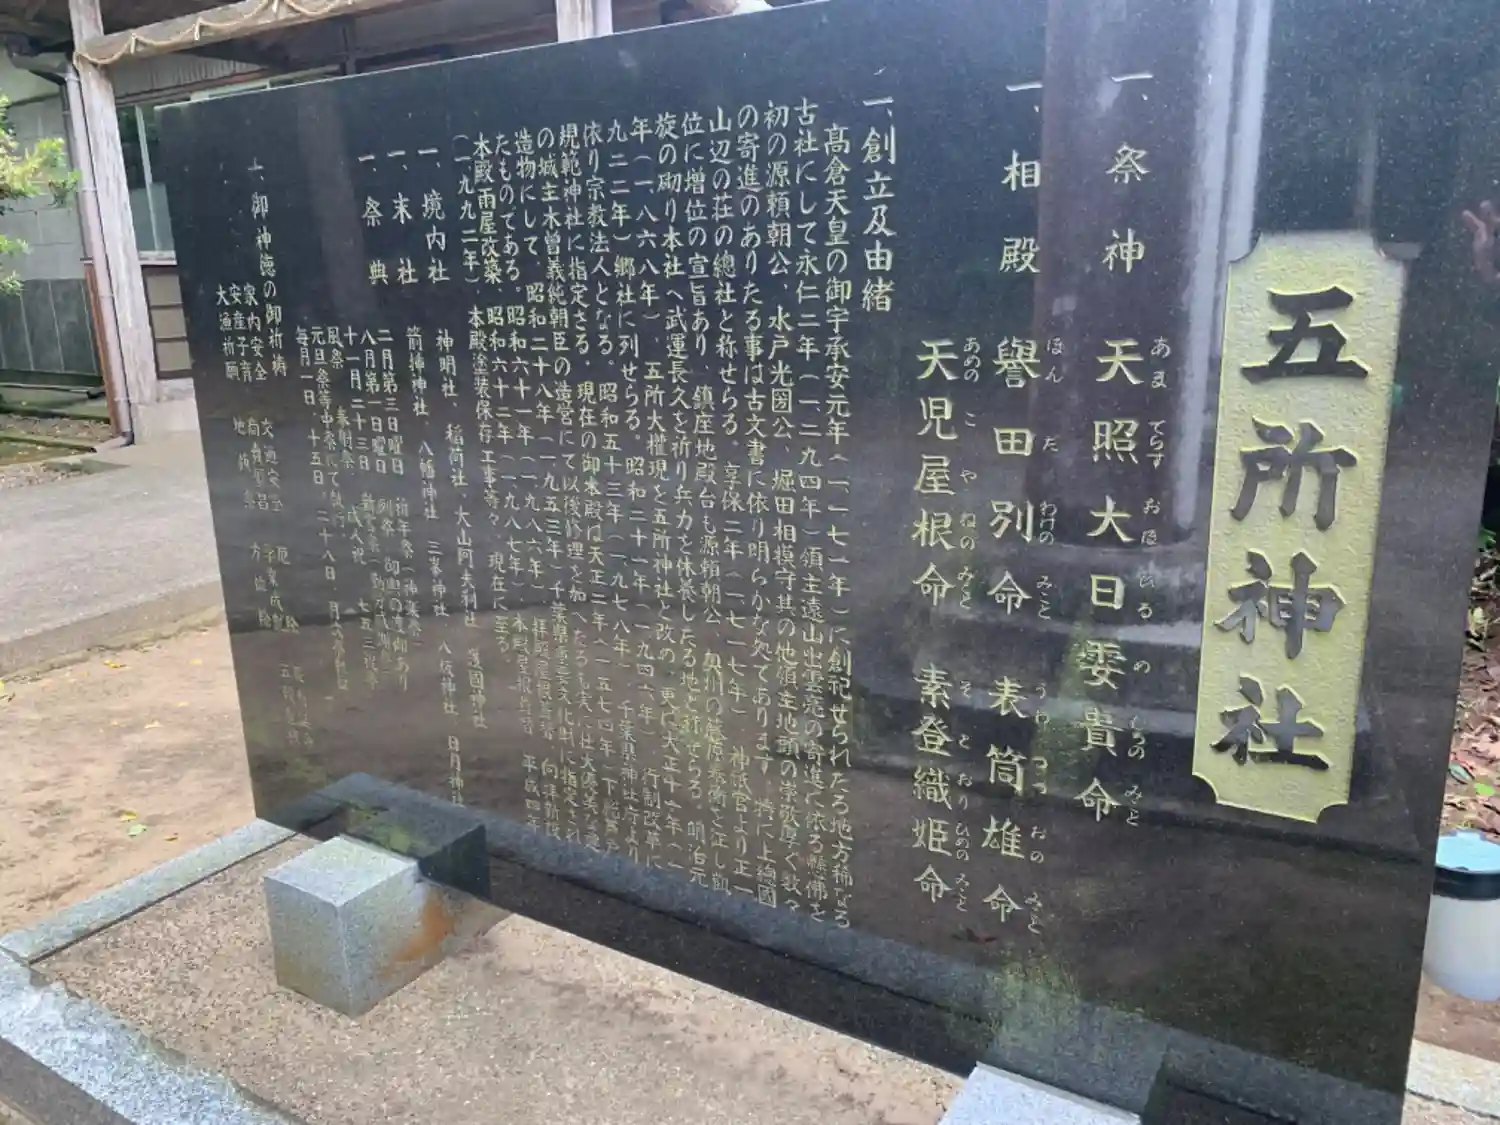 五所神社
一、祭神 天照大日孁貴命
あま てらす おほ ひる の むちの みこと
一、相殿 譽田別命 表筒雄命
ほん た わけの みこと うわ つつ おの みこと
天児屋根命 素登織姫命
あめの こ や ねの みこと そ と おり ひめの みこと
一、創立及由緒
高倉天皇の御宇承安元年(一、一七一年)領主遠山出雲亮の寄進に依る懸佛を
古社にして永仁二年(一、二九四年)に創祀せられたる地方稀なる
初の源頼朝公、水戸光圀公、堀田相模守其の他領主地頭の崇敬厚く数々
の寄進のありたる事は古文書に依り明らかな処であります。特に上総國
山辺の荘の總社と称せらる。享保二年(一七一七年)神祇官より正一
位に増位の宣旨あり、鎮座地殿台も源頼朝公、奥州の藤原泰衡を征し凱
旋の砌り本社へ武運長久を祈り兵力を休養したる地と称せらる。明治元
年(一八六八年)、五所大權現を五所神社と改め、更に大正十一年(一
九二二年)郷社に列せらる。昭和二十一年(一九四六年)行制改革に
依り宗教法人となる。昭和五十三年(一九七八年)千葉県神社庁より
規範神社に指定さる。現在の御本殿は天正二年(一五七四年)下総
の城主木曽義純朝臣の造営にて以後修理を加へたるも実に壮大優美な建
造物にして、昭和二十八年(一九五三年)千葉県重要文化財に指定され
たものである。昭和六十一年(一九八六年)拝殿屋根葺替、向拝新設、
本殿雨屋改築、昭和六十二年(一九八七年)、本殿屋根葺替、平成四年
(一九九二年)本殿塗装保存工事等々、現在に至る。
一、境内社 神明社、稲荷社、大山阿夫利社、護國神社
一、末社 箭挿神社、八幡神社、三峯神社、八坂神社、日月神社
一、祭典 二月第三日曜日 祈年祭(神楽祭)
八月第一日曜日 例祭 御輿の渡御あり
十一月二十三日 新嘗祭(勤労感謝祭)
風祭、春朝祭、成人祝、七五三祝等
元旦祭等中祭にて執行、
毎月一日、十五日、二十八日、月次祭
一、御神徳の御祈祷
家内安全 交通安全
安産子育 商賣繁昌
大漁祈願 地鎮祭 方位除